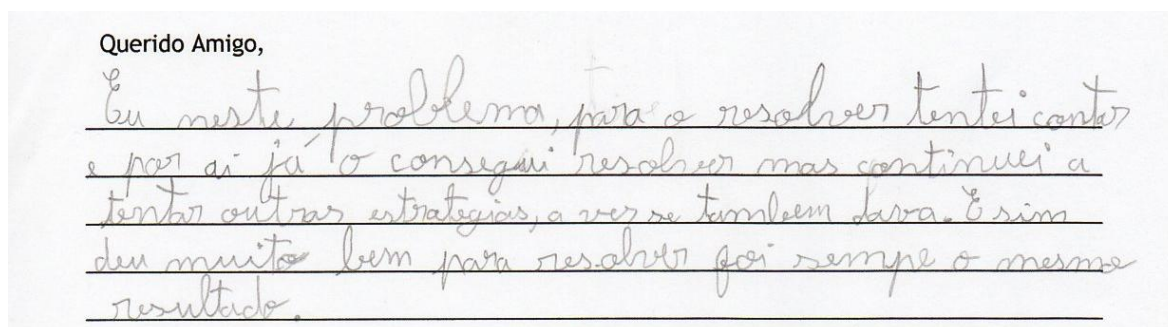 Querido Amigo,
Eu neste problema, para o resolver tentei contar
e por ai já o consegui resolver mas continuei a
tentar outras estrategias, a ver se tambem dava. E sim
deu muito bem para resolver foi sempe o mesmo
resultado.